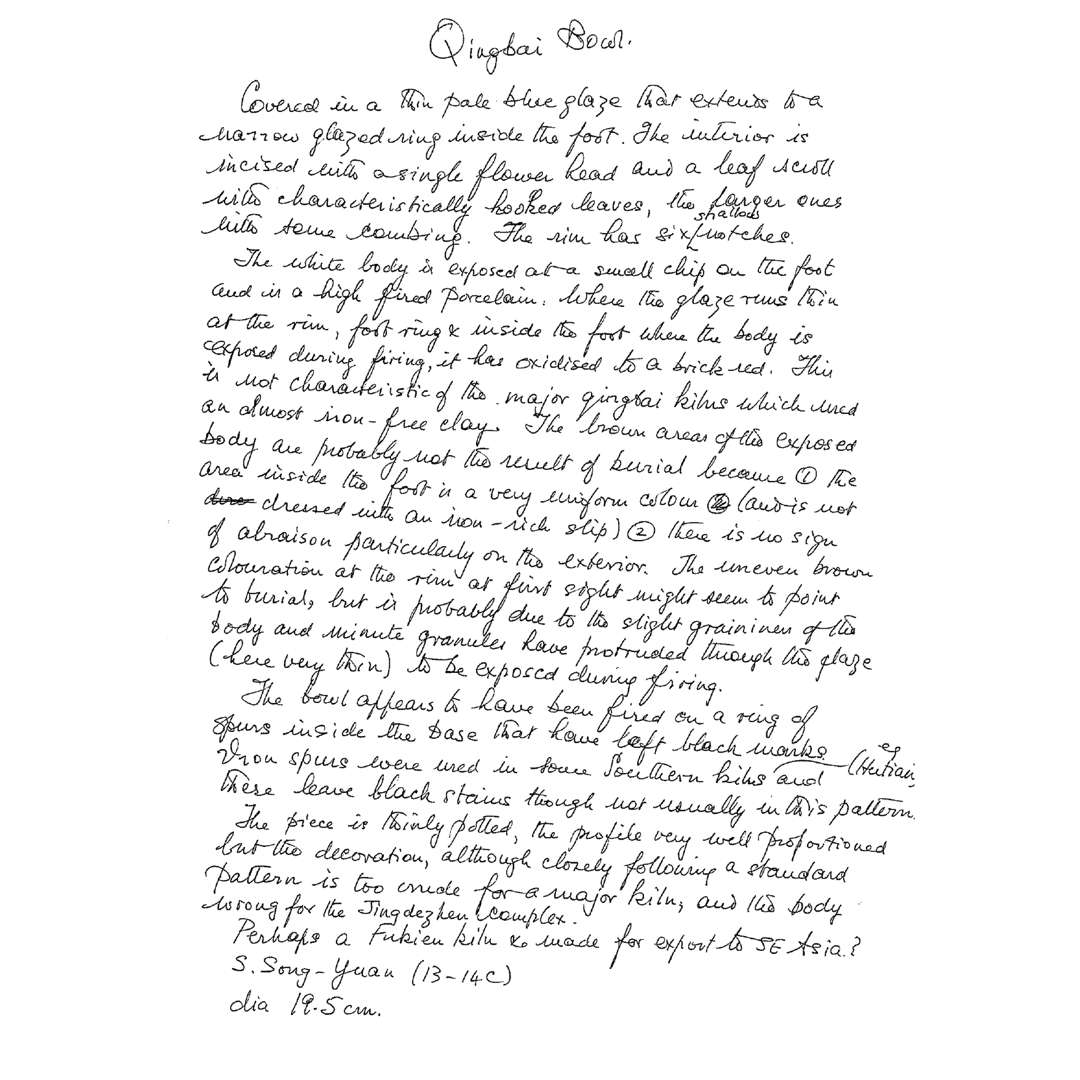 Qingbai Bowl.
Covered in a thin pale blue glaze that extends to a
narrow glazed ring inside the foot. The interior is
incised with a single flower head and a leaf scroll
with characteristically hooked leaves, the larger ones
with some combing. The rim has six shallow notches.
The white body is exposed at a small chip on the foot
and is a high fired porcelain. Where the glaze runs thin
at the rim, foot ring & inside the foot where the body is
exposed during firing, it has oxidised to a brick red. This
is not characteristic of the major qingbai kilns which used
an almost iron-free clay. The brown areas of the exposed
body are probably not the result of burial because ① the
area inside the foot is a very uniform colour (and is not
dressed with an iron-rich slip) ② there is no sign
of abraison particularly on the exterior. The uneven brown
colouration at the rim at first sight might seem to point
to burial, but is probably due to the slight graininess of the
body and minute granules have protruded through the glaze
(here very thin) to be exposed during firing.
The bowl appears to have been fired on a ring of
spurs inside the base that have left black marks.
Iron spurs were used in some Southern kilns (eg Hutian, and
these leave black stains though not usually in this pattern.
The piece is thinly potted, the profile very well proportioned
but the decoration, although closely following a standard
pattern is too crude for a major kiln, and the body
wrong for the Jingdezhen complex.
Perhaps a Fukien kiln & made for export to SE Asia.?
S. Song-Yuan (13-14C)
dia 19.5 cm.